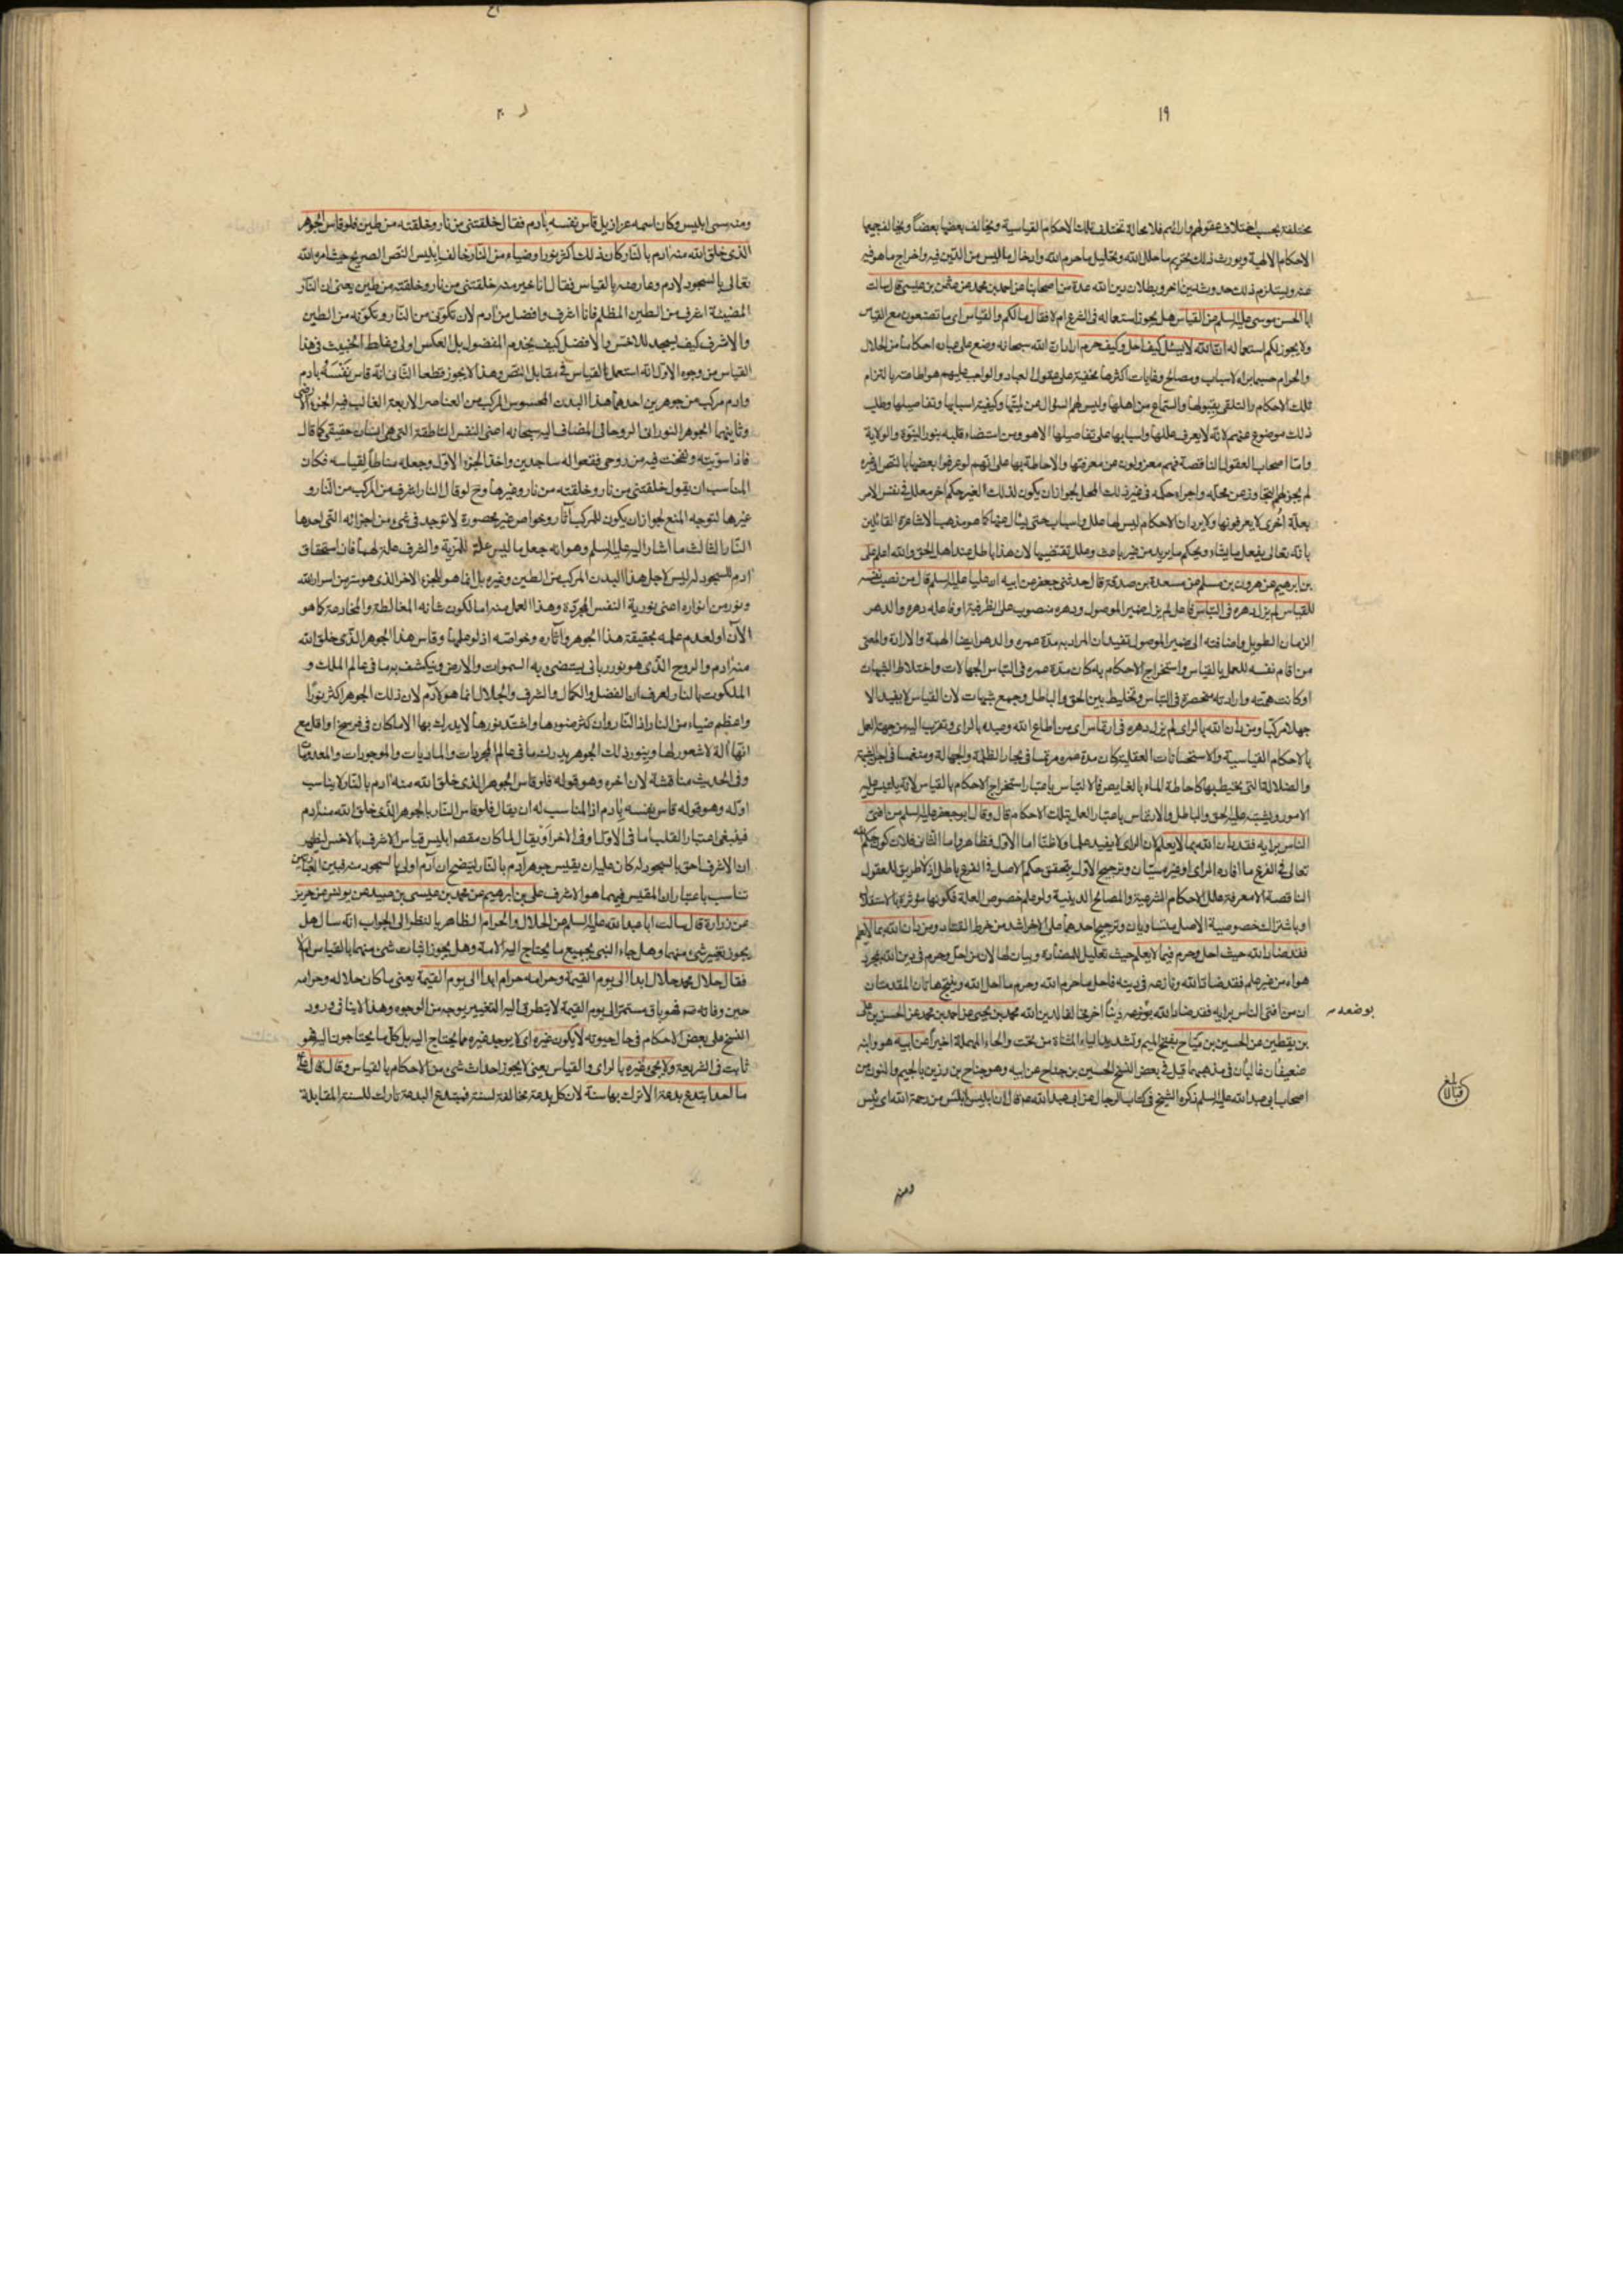 ١٩
مختلفة بحسب اختلاف عقولهم وارائهم فلا محالة تختلف تلك الاحكام القياسية ويخالف بعضها بعضاً ويخالف جميعها
الاحكام الالهية ويورث ذلك تحريم ما حلل الله وتحليل ما حرم الله وادخال ما ليس من الدين فيه واخراج ما هو فيه
عنه ويستلزم ذلك حدوث دين اخر وبطلان دين الله عدة من اصحابنا عن احمد بن محمد عن عثمن بن عيسى قال سالت
ابا الحسن موسى عليه السلم عن القياس هل يجوز استعماله في الشرع ام لا فقال ما لكم والقياس اى ما تصنعون مع القياس
ولا يجوز لكم استعماله ان الله لا يسئل كيف احل وكيف حرم اراد ان الله سبحانه وضع على عباده احكاما من الحلال
والحرام حسبما يراه لاسباب ومصالح وغايات اكثرها مخفية على عقول العباد والواجب عليهم هو اطاعته بالتزام
تلك الاحكام والتلقى بقبولها والسماع من اهلها وليس لهم السؤال عن لميتها وكيفية اسبابها وتفاصيلها وطلب
ذلك موضوع عنهم لانه لا يعرف عللها واسبابها على تفاصيلها الا هو ومن استضاء قلبه بنور النبوة والولاية
واما اصحاب العقول الناقصة فهم معزولون عن معرفتها والاحاطة بها على انهم لو عرفوا بعضها بالنص او غيره
لم يجز لهم التجاوز عن محله واجراء حكمه في غير ذلك المحل لجواز ان يكون لذلك الغير حكم اخر معلل في نفس الامر
بعلة أخرى لا يعرفونها ولا يرد ان الاحكام ليس لها علل واسباب حتى يسال عنها كما هو مذهب الاشاعرة القائلين
بانه تعالى يفعل ما يشاء ويحكم ما يريد من غير باعث وعلل تقتضيها لان هذا باطل عند اهل الحق والله اعلم على
بن ابرهيم عن هرون بن مسلم عن مسعدة بن صدقة قال حدثنى جعفر عن ابيه ان عليا عليه السلم قال من نصب نفسه
للقياس لم يزل دهره في التباس فاعل لم يزل ضمير الموصول ودهره منصوب على الظرفية او فاعله دهره والدهر
الزمان الطويل واضافته الى ضمير الموصول تفيد ان المراد به مدة عمره والدهر ايضا الهمة والارادة والمعنى
من اقام نفسه للعمل بالقياس واستخراج الاحكام به كان مدة عمره في التباس الجهالات واختلاط الشبهات
او كانت همته وارادته منحصرة في التباس وتخليط بين الحق والباطل وجمع شبهات لان القياس لا يفيد الا
جهلا مركبا ومن دان الله بالراى لم يزل دهره في ارتماس اى من اطاع الله وعبده بالراى وتقرب اليه من جهة العمل
بالاحكام القياسية والاستحسانات العقلية كان مدة عمره مرتمسا في بحار الظلمة والجهالة ومنغمسا في
والضلالة التى يحيط بها كاحاطة الماء بالغايص فالالتباس باعتبار استخراج الاحكام بالقياس لانه يلتبس عليه
الامور ويشتبه عليه الحق والباطل والارتماس باعتبار العمل بتلك الاحكام قال وقال ابو جعفر عليه السلم من افتى
الناس برايه فقد دان الله بما لا يعلم لان الراى لا يفيد علما ولا ظنا اما الاول فظاهر واما الثانى فلان كون حكم الله
تعالى في الفرع ما افاده الراى او غيره سيان وترجيح الاول بتحقق حكم الاصل في الفرع باطل اذ لا طريق للعقول
الناقصة الا معرفة علل الاحكام الشرعية والمصالح الدينية ولو علم خصوص العلة فكونها مؤثرة بالاستقلال
او باشتراك خصوصية الاصل متساويان وترجيح احدهما على الاخر اشد من خرط القتاد ومن دان الله بما لا يعلم
فقد ضاد الله حيث احل وحرم فيما لا يعلم حيث تعليل للمضادة وبيان لها لان من احل وحرم في دين الله بمجرد
هواه من غير علم فقد ضاد الله ونازعه في دينه فاحل ما حرم الله وحرم ما احل الله وينتج هاتان المقدمتان
ان من افتى الناس برايه فقد ضاد الله بوضعه ديناً اخر مخالفا لدين الله محمد بن يحيى عن احمد بن محمد عن الحسن بن على
بن يقطين عن الحسين بن مياح بفتح الميم وتشديد الياء المثناة من تحت والحاء المهملة اخيراً عن ابيه هو وابنه
ضعيفان غاليان في مذهبهما قيل في بعض النسخ الحسين بن جناح عن ابيه وهو جناح بن رذين بالجيم والنون من
اصحاب ابى عبد الله عليه السلم ذكره الشيخ في كتاب الرجال عن ابى عبد الله عم قال ان ابليس ابلس من رحمة الله اى يئس
بوضعه
ومنه
٢٠
ومنه سمى ابليس وكان اسمه عزازيل قاس نفسه بادم فقال خلقتنى من نار وخلقته من طين فلو قاس الجوهر
الذى خلق الله منه ادم بالنار كان ذلك اكثر نورا وضياء من النار خالف ابليس النص الصريح حيث امره الله
تعالى بالسجود لادم وعارضه بالقياس فقال انا خير منه خلقتنى من نار وخلقته من طين يعنى ان النار
المضيئة اشرف من الطين المظلم فانا اشرف وافضل من ادم لان تكونى من النار وتكونه من الطين
والاشرف كيف يسجد للاخس والافضل كيف يخدم المفضول بل العكس اولى وغلط الخبيث في هذا
القياس من وجوه الاول انه استعمل القياس في مقابل النص وهذا لا يجوز قطعا الثانى انه قاس نفسه بادم
وادم مركب من جوهرين احدهما هذا البدن المحسوس المركب من العناصر الاربعة الغالب فيه الجزء الارضى
وثانيهما الجوهر النورانى الروحانى المضاف اليه سبحانه اعنى النفس الناطقة التى هى انسان حقيقى كما قال
فاذا سويته ونفخت فيه من روحى فقعوا له ساجدين واخذ الجزء الاول وجعله مناطاً لقياسه فكان
المناسب ان يقول خلقتنى من نار وخلقته من نار وغيرها وح لو قال النار اشرف من المركب من النار و
غيرها لتوجه المنع لجواز ان يكون للمركب آثار وخواص غير محصورة لا توجد في شى من اجزائه التى احدها
النار الثالث ما اشار اليه عليه السلم وهو انه جعل ما ليس علة للمزية والشرف علة لهما فان استحقاق
ادم للسجود له ليس لاجل هذا البدن المركب من الطين وغيره بل انما هو للجزء الاخر الذى هو سر من اسرار الله
ونور من انواره اعنى نورية النفس المجردة وهذا العمل منه اما لكون شانه المغالطة والمخادعة كما هو
الآن او لعدم علمه بحقيقة هذا الجوهر وآثاره وخواصه اذ لو علمها وقاس هذا الجوهر الذى خلق الله
منه ادم والروح الذى هو نور ربانى يستضئ به السموات والارض وينكشف به ما في عالم الملك و
الملكوت بالنار لعرف ان الفضل والكمال والشرف والجلال انما هو لادم لان ذلك الجوهر اكثر نورًا
واعظم ضياء من النار اذ النار وان كثر ضوءها واشتد نورها لا يدرك بها الا ما كان في فرسخ او اقل مع
انها آلة لا شعور لها وبنور ذلك الجوهر يدرك ما في عالم المجردات والماديات والموجودات والمعدومات
وفي الحديث مناقشة لان اخره وهو قوله فلو قاس الجوهر الذى خلق الله منه ادم بالنار لا يناسب
اوله وهو قوله قاس نفسه بادم اذ المناسب له ان يقال فلو قاس النار بالجوهر الذى خلق الله منه ادم
فينبغى اعتبار القلب اما في الاول او في الاخر او يقال لما كان مقصد ابليس قياس الاشرف بالاخس ليظهر
ان الاشرف احق بالسجود له كان عليه ان يقيس جوهر آدم بالنار ليتضح ان آدم اولى بالسجود منه فبين العبارتين
تناسب باعتبار ان المقيس فيهما هو الاشرف على بن ابرهيم عن محمد بن عيسى بن عبيد عن يونس عن حريز
عن زرارة قال سالت ابا عبد الله عليه السلم عن الحلال والحرام الظاهر بالنظر الى الجواب انه سال هل
يجوز تغيير شئ منهما وهل جاء النبى بجميع ما يحتاج اليه الامة وهل يجوز اثبات شئ منهما بالقياس ام لا
فقال حلال محمد حلال ابدا الى يوم القيمة وحرامه حرام ابدا الى يوم القيمة يعنى ما كان حلاله وحرامه
حين وفاته ص فهو باق مستمر الى يوم القيمة لا يتطرق اليه التغيير بوجه من الوجوه وهذا لا ينافى ورود
النسخ على بعض الاحكام في حال حيوته لا يكون غيره اى لا يوجد غيره مما يحتاج اليه بل كل ما يحتاجون اليه فهو
ثابت في الشريعة ولا يجئ غيره بالراى والقياس يعنى لا يجوز احداث شئ من الاحكام بالقياس وقال قال على
ما احد ابتدع بدعة الا ترك بها سنة لان كل بدعة مخالفة لسنة فمبتدع البدعة تارك للسنة المقابلة